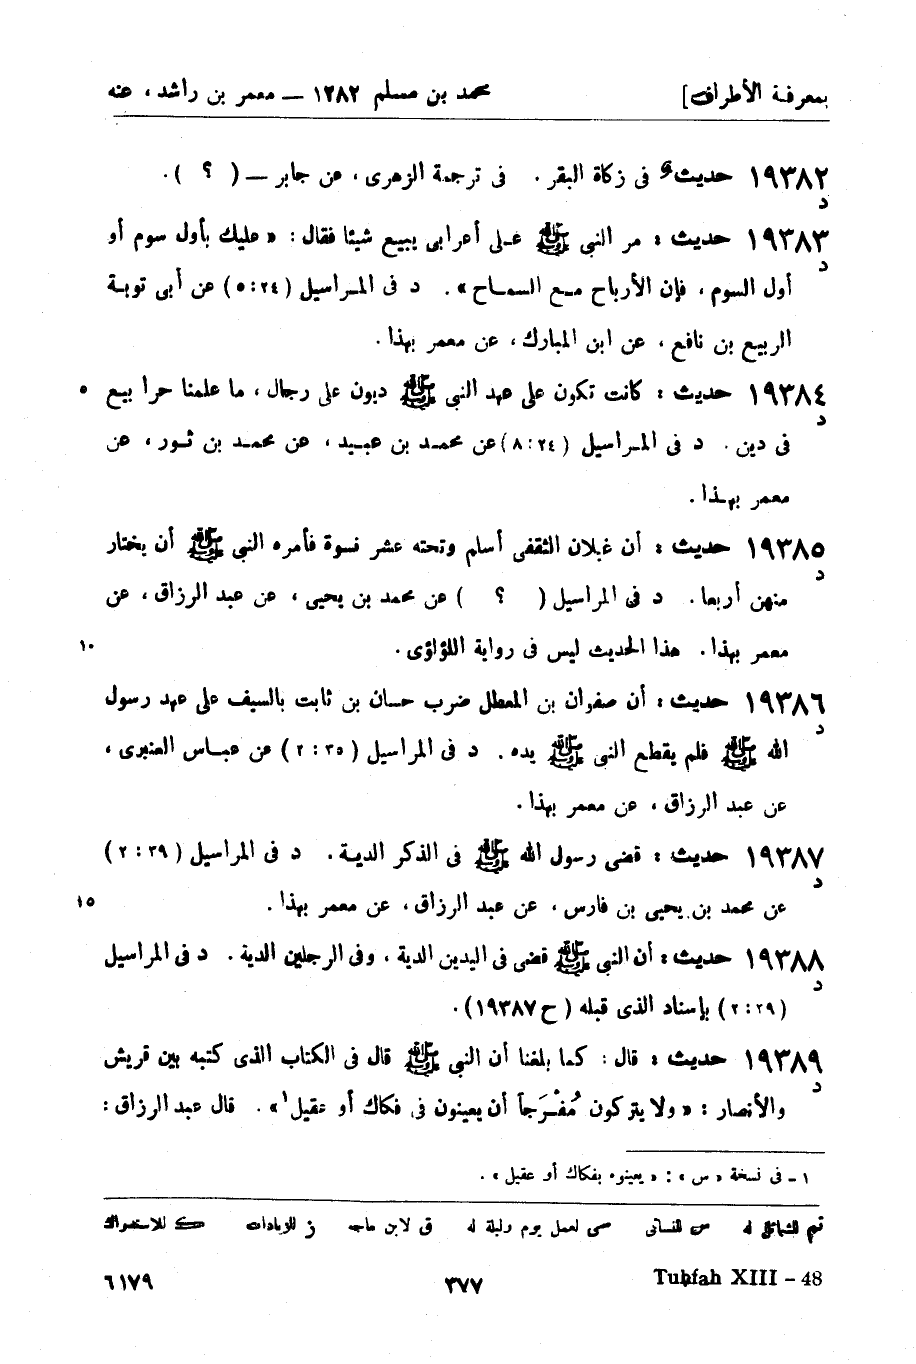 بمعرفة الأطراف] محمد بن مسلم ١٢٨٢ — معمر بن راشد، عنه
١٩٣٨٢ حديث فى زكاة البقر. فى ترجمة الزهرى، عن جابر — ( ؟ ).
د
١٩٣٨٣ حديث: مر النبى ﷺ على أعرابى يبيع شيئا فقال: «عليك بأول سوم أو
د
أول السوم، فإن الأرباح مع السماح». د فى المراسيل (٢٤: ٥) عن أبى توبة
الربيع بن نافع، عن ابن المبارك، عن معمر بهذا.
١٩٣٨٤ حديث: كانت تكون على عهد النبى ﷺ ديون على رجال، ما علمنا حرا بيع ٥
د
فى دين. د فى المراسيل (٢٤: ٨) عن محمد بن عبيد، عن محمد بن ثور، عن
معمر بهذا.
١٩٣٨٥ حديث: أن غيلان الثقفى أسلم وتحته عشر نسوة فأمره النبى ﷺ أن يختار
د
منهن أربعا. د فى المراسيل ( ؟ ) عن محمد بن يحيى، عن عبد الرزاق، عن
معمر بهذا. هذا الحديث ليس فى رواية اللؤلؤى. ١٠
١٩٣٨٦ حديث: أن صفوان بن المعطل ضرب حسان بن ثابت بالسيف على عهد رسول
د
الله ﷺ فلم يقطع النبى ﷺ يده. د فى المراسيل (٣٥: ٢) عن عباس العنبرى،
عن عبد الرزاق، عن معمر بهذا.
١٩٣٨٧ حديث: قضى رسول الله ﷺ فى الذكر الدية. د فى المراسيل (٣٩: ٢)
د
عن محمد بن يحيى بن فارس، عن عبد الرزاق، عن معمر بهذا. ١٥
١٩٣٨٨ حديث: أن النبى ﷺ قضى فى اليدين الدية، وفى الرجلين الدية. د فى المراسيل
د
(٢٩: ٢) بإسناد الذى قبله (ح ١٩٣٨٧).
١٩٣٨٩ حديث: قال: كما بلغنا أن النبى ﷺ قال فى الكتاب الذى كتبه بين قريش
د
والأنصار: «ولا يتركون مُفْرَجاً أن يعينون فى فكاك أو عقيل¹». قال عبد الرزاق:
١ - فى نسخة «س»: «يعينوه بفكاك أو عقيل».
تم للشمائل له س للنسائى سى لعمل يوم وليلة له ق لابن ماجه ز للزيادات ك للاستدراك
Tuḥfah XIII – 48 ٣٧٧ ٦١٧٩